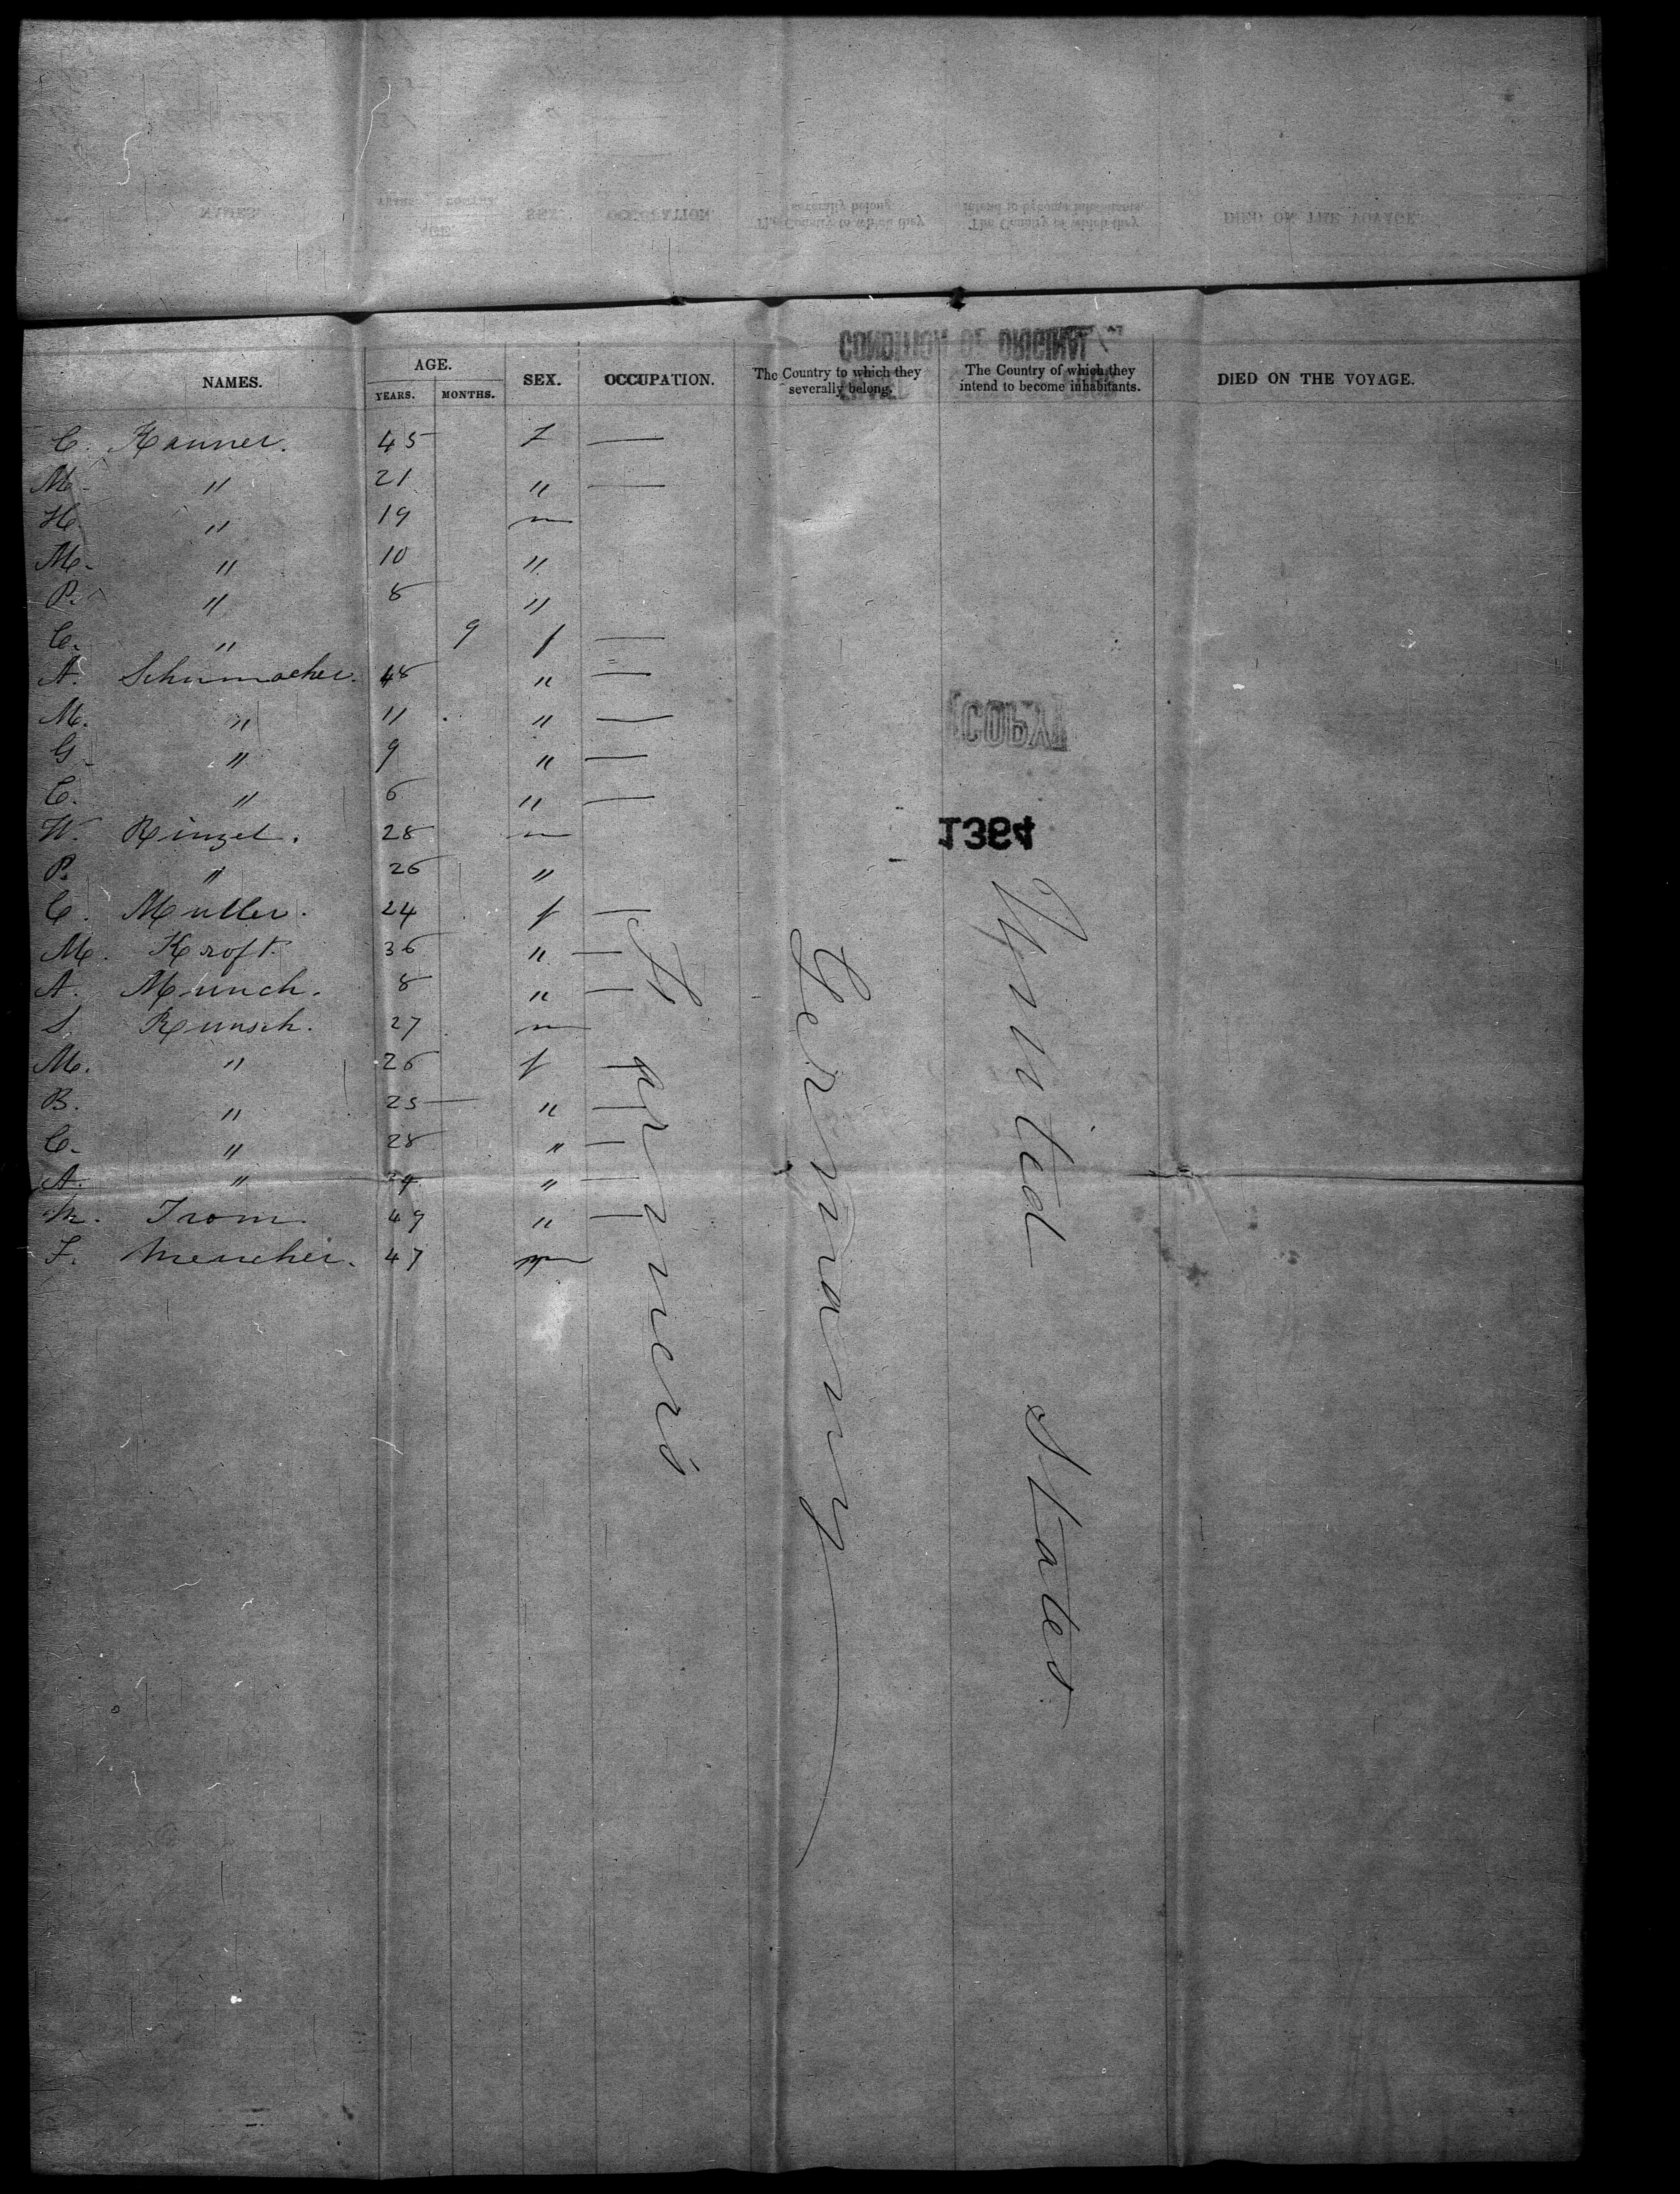 NAMES. AGE. YEARS. MONTHS. SEX. OCCUPATION. The Country to which they severally belong. The Country of which they intend to become inhabitants. DIED ON THE VOYAGE.
CONDITION OF ORIGINAL
C. Kanner. 45 f —
M. " 21 " —
H. " 19 m
M. " 10 "
P. " 8 "
C. " 9 f —
A. Schumacher. 48 " —
M. " 11 " —
G. " 9 " —
C. " 6 " —
W. Rinzel. 28 m
P. " 26 "
C. Muller. 24 f —
M. Kroft. 36 " —
A. Munch. 8 " —
S. Runsch. 27 m
M. " 26 f —
B. " 25 " —
C. " 28 " —
A. " 24 " —
M. Trom. 49 " —
F. Mencher. 47 m
Farmers
Germany
United States
COPY
1364